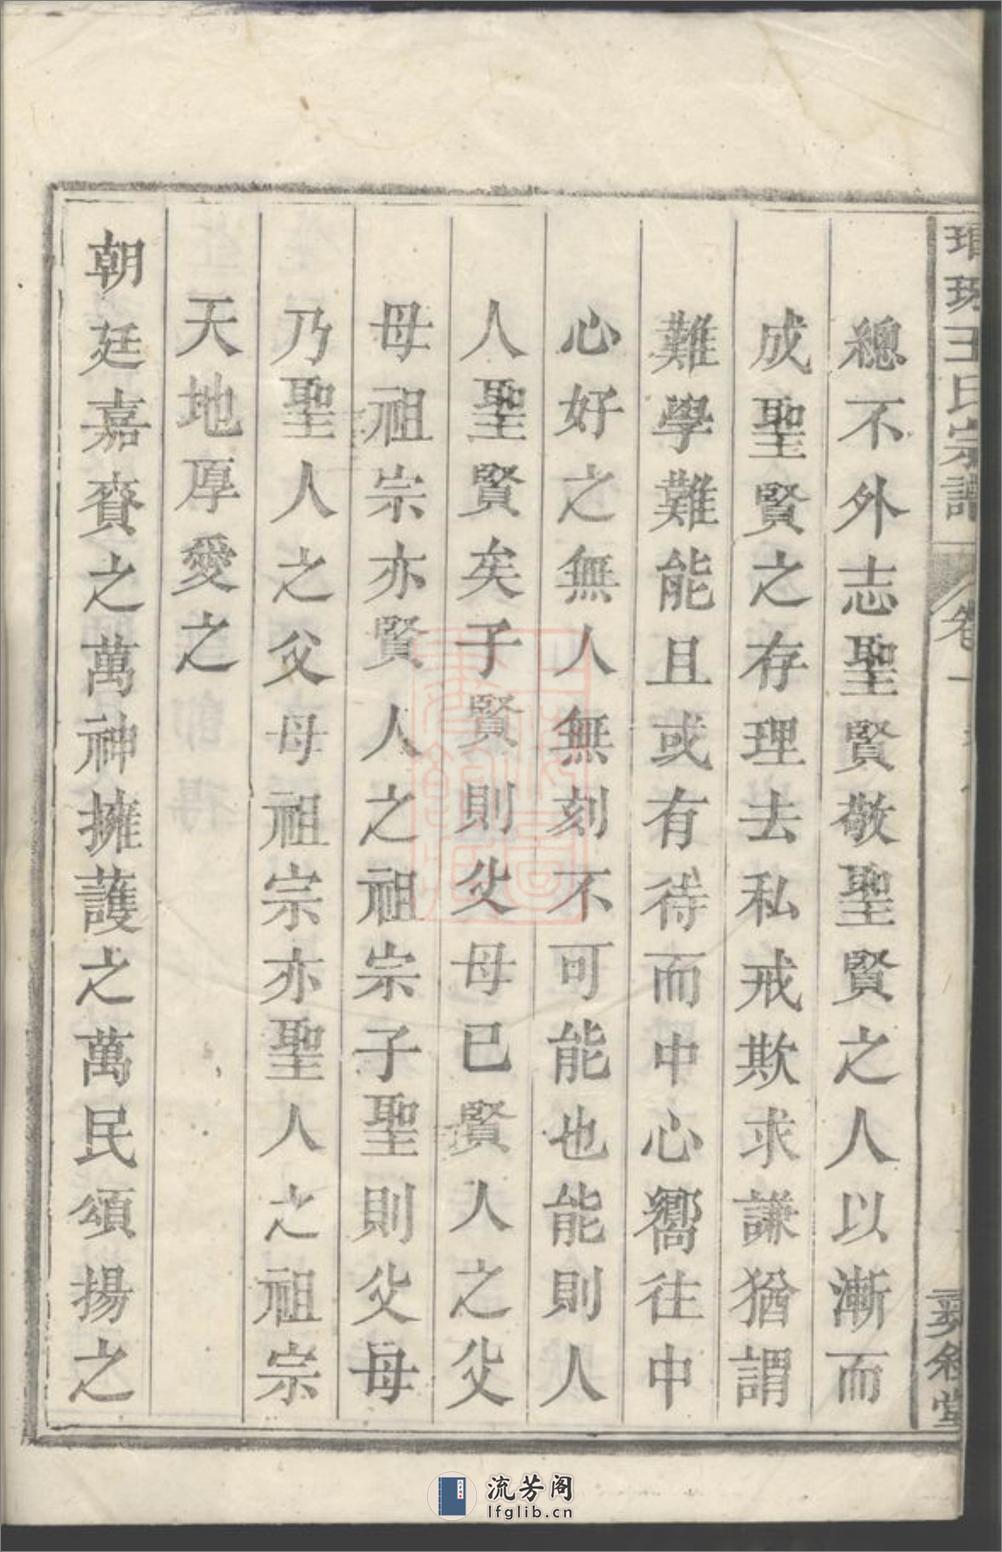 瑯琊王氏宗譜
卷一
彝敘堂
總不外志聖賢敬聖賢之人以漸而
成聖賢之存理去私戒欺求謙猶謂
難學難能且或有待而中心嚮往中
心好之無人無刻不可能也能則人
人聖賢矣子賢則父母已賢人之父
母祖宗亦賢人之祖宗子聖則父母
乃聖人之父母祖宗亦聖人之祖宗
天地厚愛之
朝廷嘉賚之萬神擁護之萬民頌揚之
流芳阁
lfglib.cn